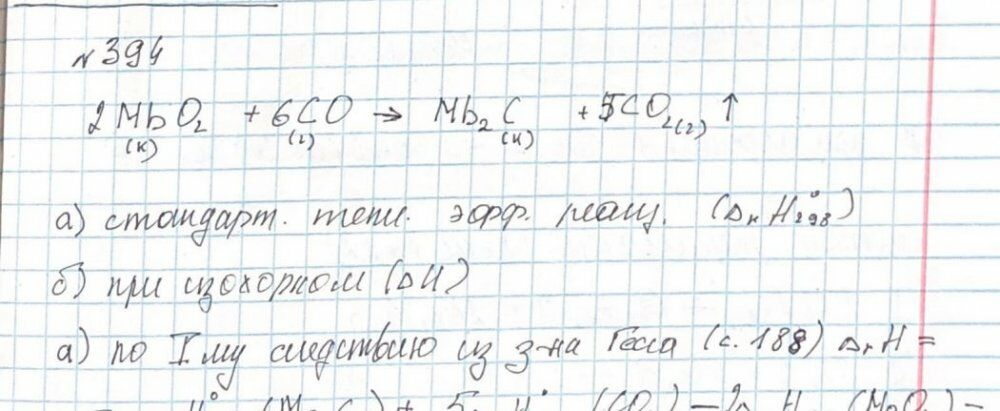 N 394
2MbO₂(к) + 6CO(г) → Mb₂C(к) + 5CO₂(г) ↑
а) стандарт. тепл. эфф. реакц. (ΔrH°₂₉₈)
б) при изохорном (ΔU)
а) по I му следствию из з-на Гесса (с. 188) ΔrH =
H° (C) + 5 H° (CO₂) – 2 H (MoO₂) –